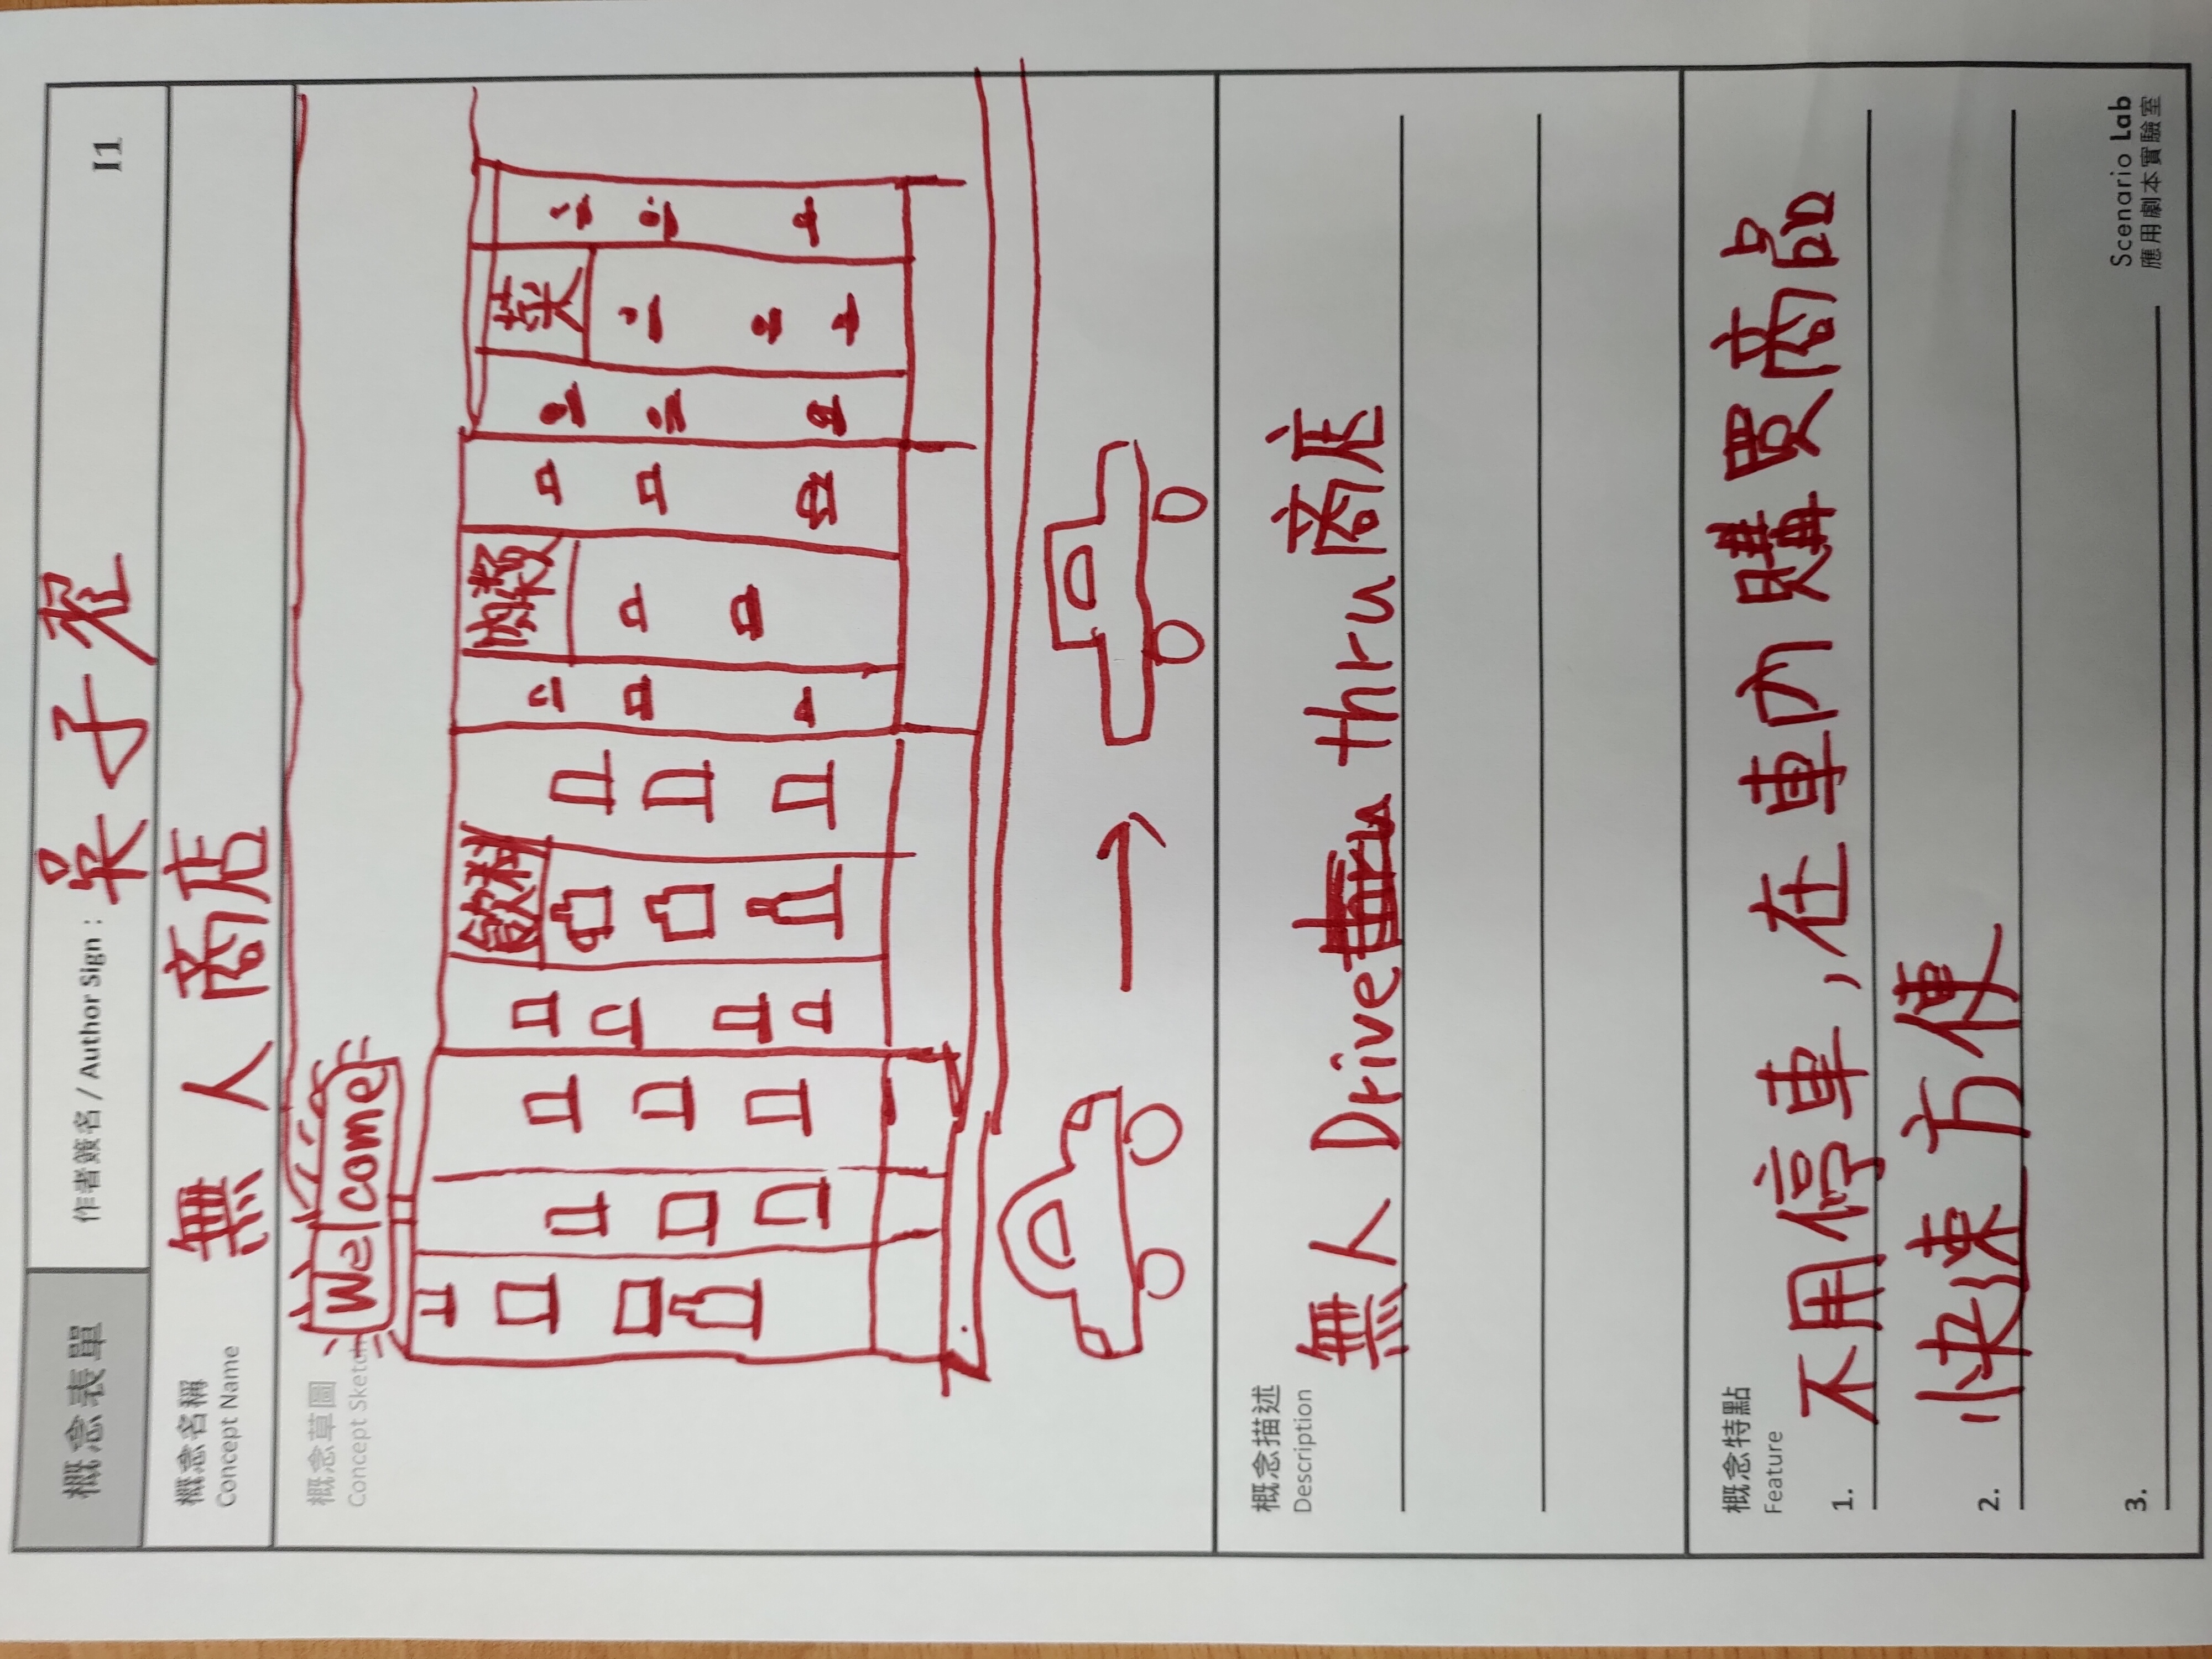 概念表單
作者簽名 / Author Sign : 吳子翟
I1
概念名稱
Concept Name
無人商店
概念草圖
Concept Sketch
Welcome
飲料
肉類
菜
概念描述
Description
無人 Drive thru 商店
概念特點
Feature
1. 不用停車,在車內購買商品
2. 快速方便
3.
Scenario Lab
應用劇本實驗室